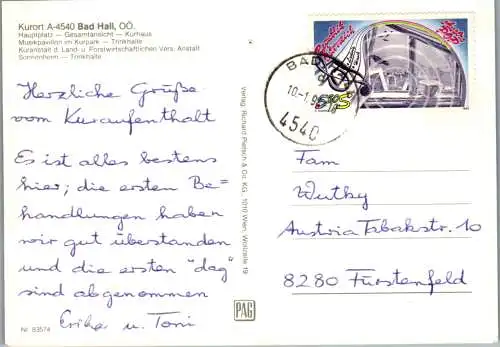 Kurort A-4540 Bad Hall, OÖ.
Hauptplatz — Gesamtansicht — Kurhaus
Musikpavillon im Kurpark — Trinkhalle
Kuranstalt d. Land- u. Forstwirtschaftlichen Vers. Anstalt
Sonnenheim — Trinkhalle
Herzliche Grüße
vom Kuraufenthalt
Es ist alles bestens
hier; die ersten Be-
handlungen haben
wir gut überstanden
und die ersten "dag"
sind abgenommen
Erika u. Toni
Nr. 83574
Verlag: Richard Pietsch & Co. KG, 1010 Wien, Wollzeile 19
PAG
BAD
10-1.9
4540
Fam
Wutky
Austria Tabakstr. 10
8280 Fürstenfeld